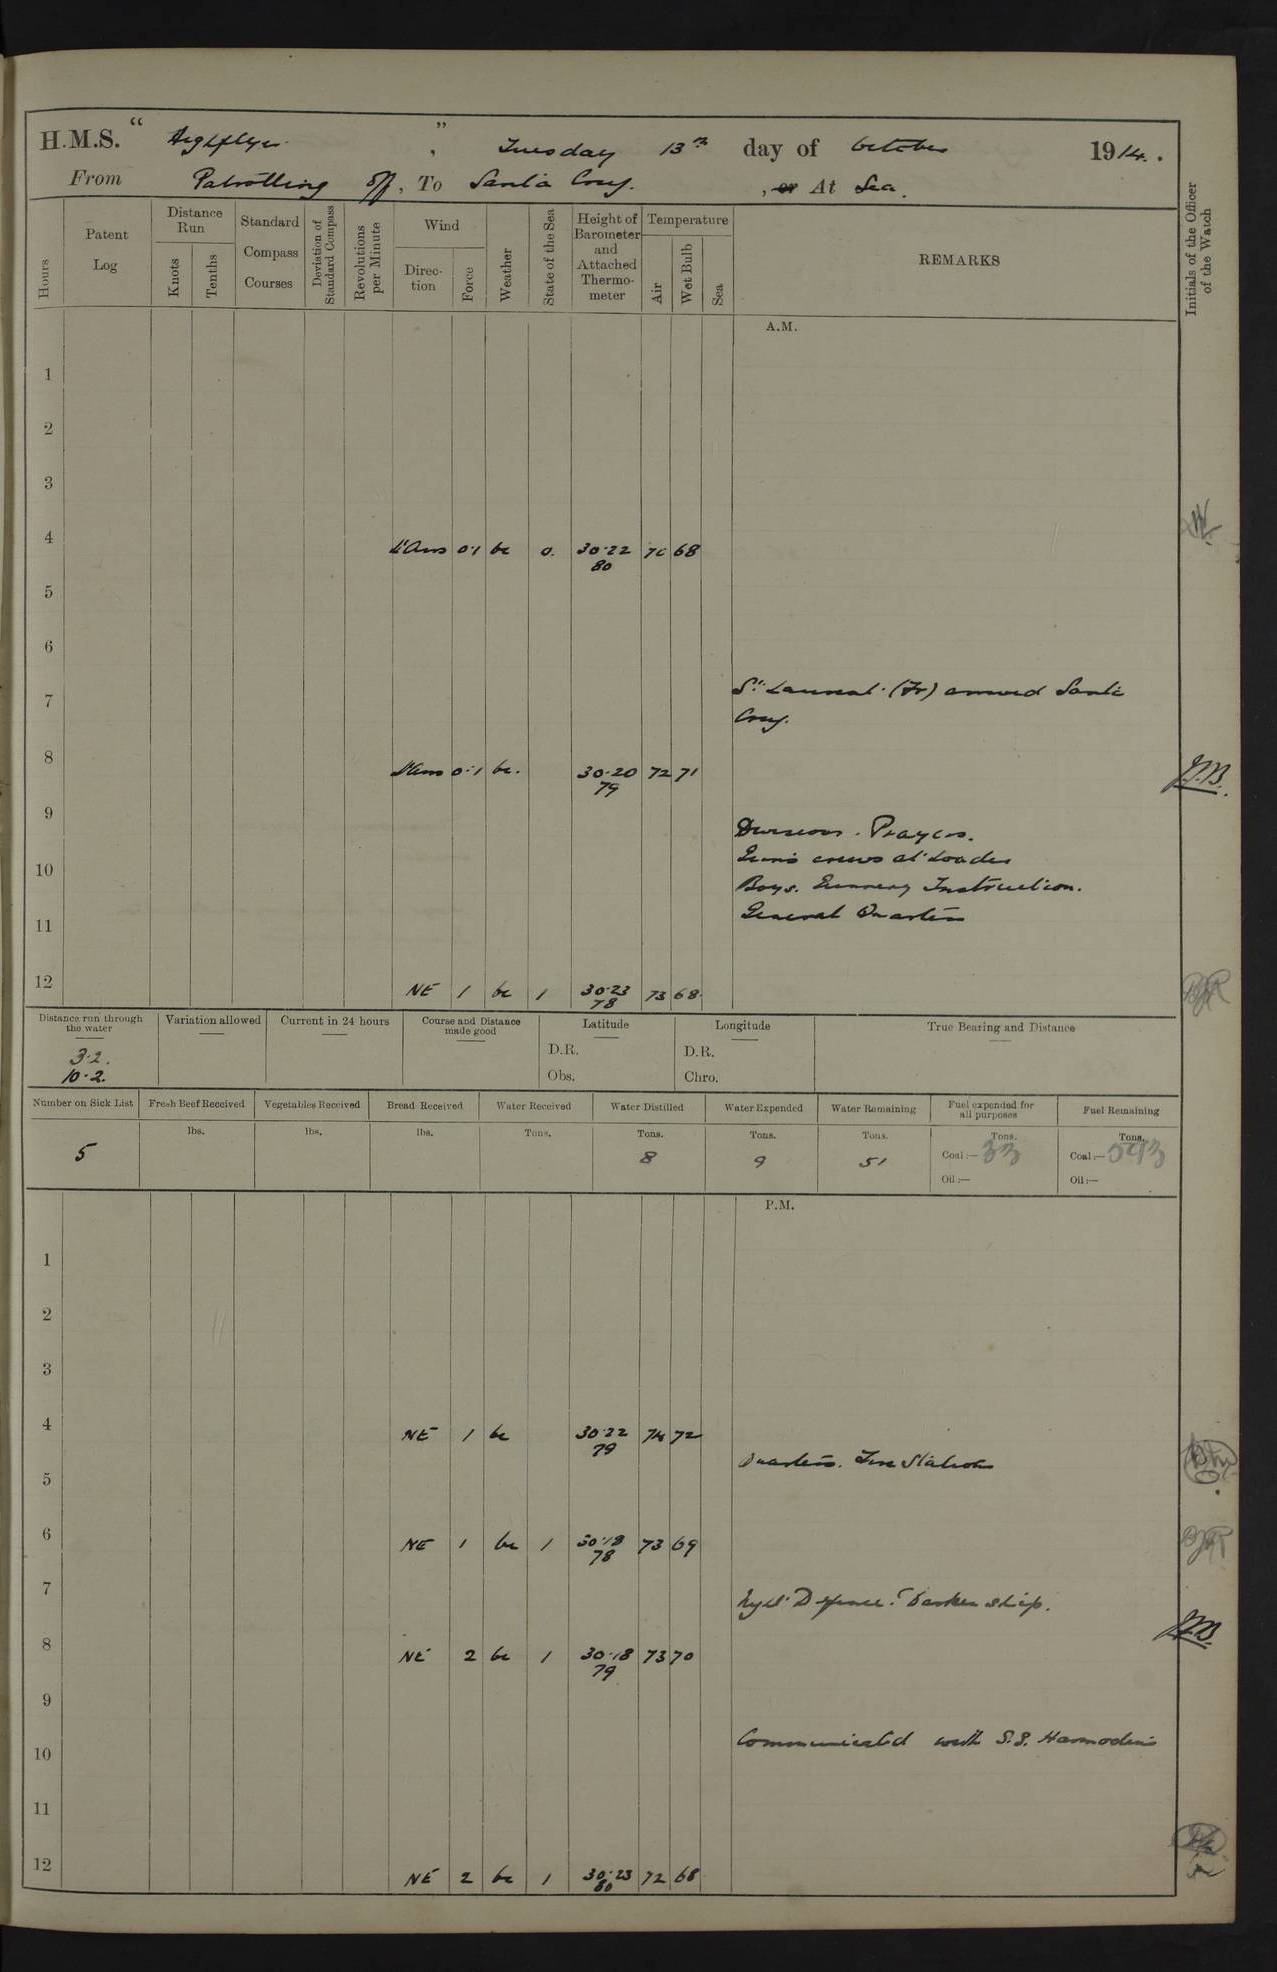 H.M.S. " Highflyer ", Tuesday 13th day of October 1914.
From Patrolling off, To Santa Cruz. , or At Sea.
Hours
Patent Log
Distance Run
Knots
Tenths
Standard Compass Courses
Deviation of Standard Compass
Revolutions per Minute
Wind
Direction
Force
Weather
State of the Sea
Height of Barometer and Attached Thermometer
Temperature
Air
Wet Bulb
Sea
REMARKS
Initials of the Officer of the Watch
A.M.
1
2
3
4 V'Ans 0·1 bc 0. 30·22 70 68
80
5
6
7 St. Laurent (Fr) arrived Santa
Cruz.
8 V'Ans 0·1 bc. 30·20 72 71
79
9 Divisions. Prayers.
Guns crews at Loader
10 Boys. Gunnery Instruction.
General Quarters
11
12 NE 1 bc 1 30·23 73 68
78
Distance run through the water
3·2.
10·2.
Variation allowed
Current in 24 hours
Course and Distance made good
Latitude
D.R.
Obs.
Longitude
D.R.
Chro.
True Bearing and Distance
Number on Sick List
5
Fresh Beef Received
lbs.
Vegetables Received
lbs.
Bread Received
lbs.
Water Received
Tons.
Water Distilled
Tons.
8
Water Expended
Tons.
9
Water Remaining
Tons.
51
Fuel expended for all purposes
Tons.
Coal:— 33
Oil:—
Fuel Remaining
Tons.
Coal:— 593
Oil:—
P.M.
1
2
3
4 NE 1 bc 30·22 74 72
79
Quarters. Fire Stations
5
6 NE 1 bc 1 30·18 73 69
78
7 Night Defence. Darken ship.
8 NE 2 bc 1 30·18 73 70
79
9
Communicated with S.S. Harmodius
10
11
12 NE 2 bc 1 30·23 72 68
80